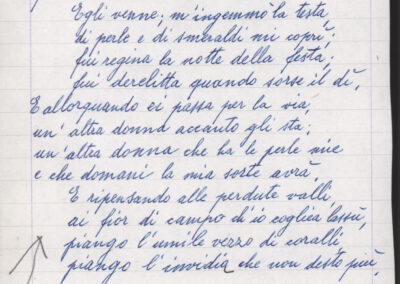 Egli venne; m'ingemmò la testa,
di perle e di smeraldi mi coprì;
fui regina la notte della festa,
fui derelitta quando sorse il dì,
E allorquando ei passa per la via,
un'altra donna accanto gli sta;
un'altra donna che ha le perle mie
e che domani la mia sorte avrà.
E ripensando alle perdute valli,
ai fior di campo ch'io coglieа lassù,
piango l'umile vezzo di coralli,
piango l'invidia che non desto più.